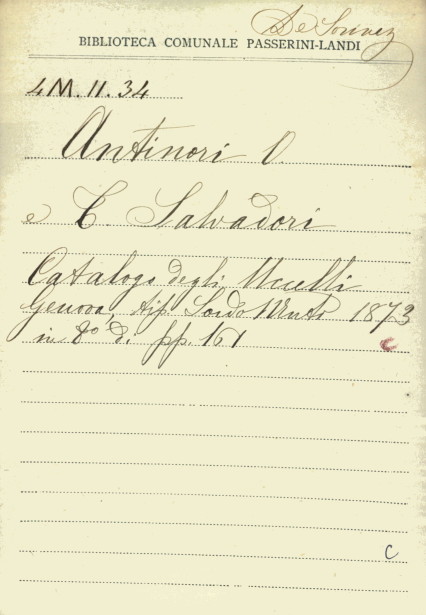 De Sorivez
BIBLIOTECA COMUNALE PASSERINI-LANDI
4M.II.34
Antinori O.
e T. Salvadori
Catalogo degli Uccelli
Genova, tip. Sordo Muti 1873
in 8º d. pp. 161
C
C